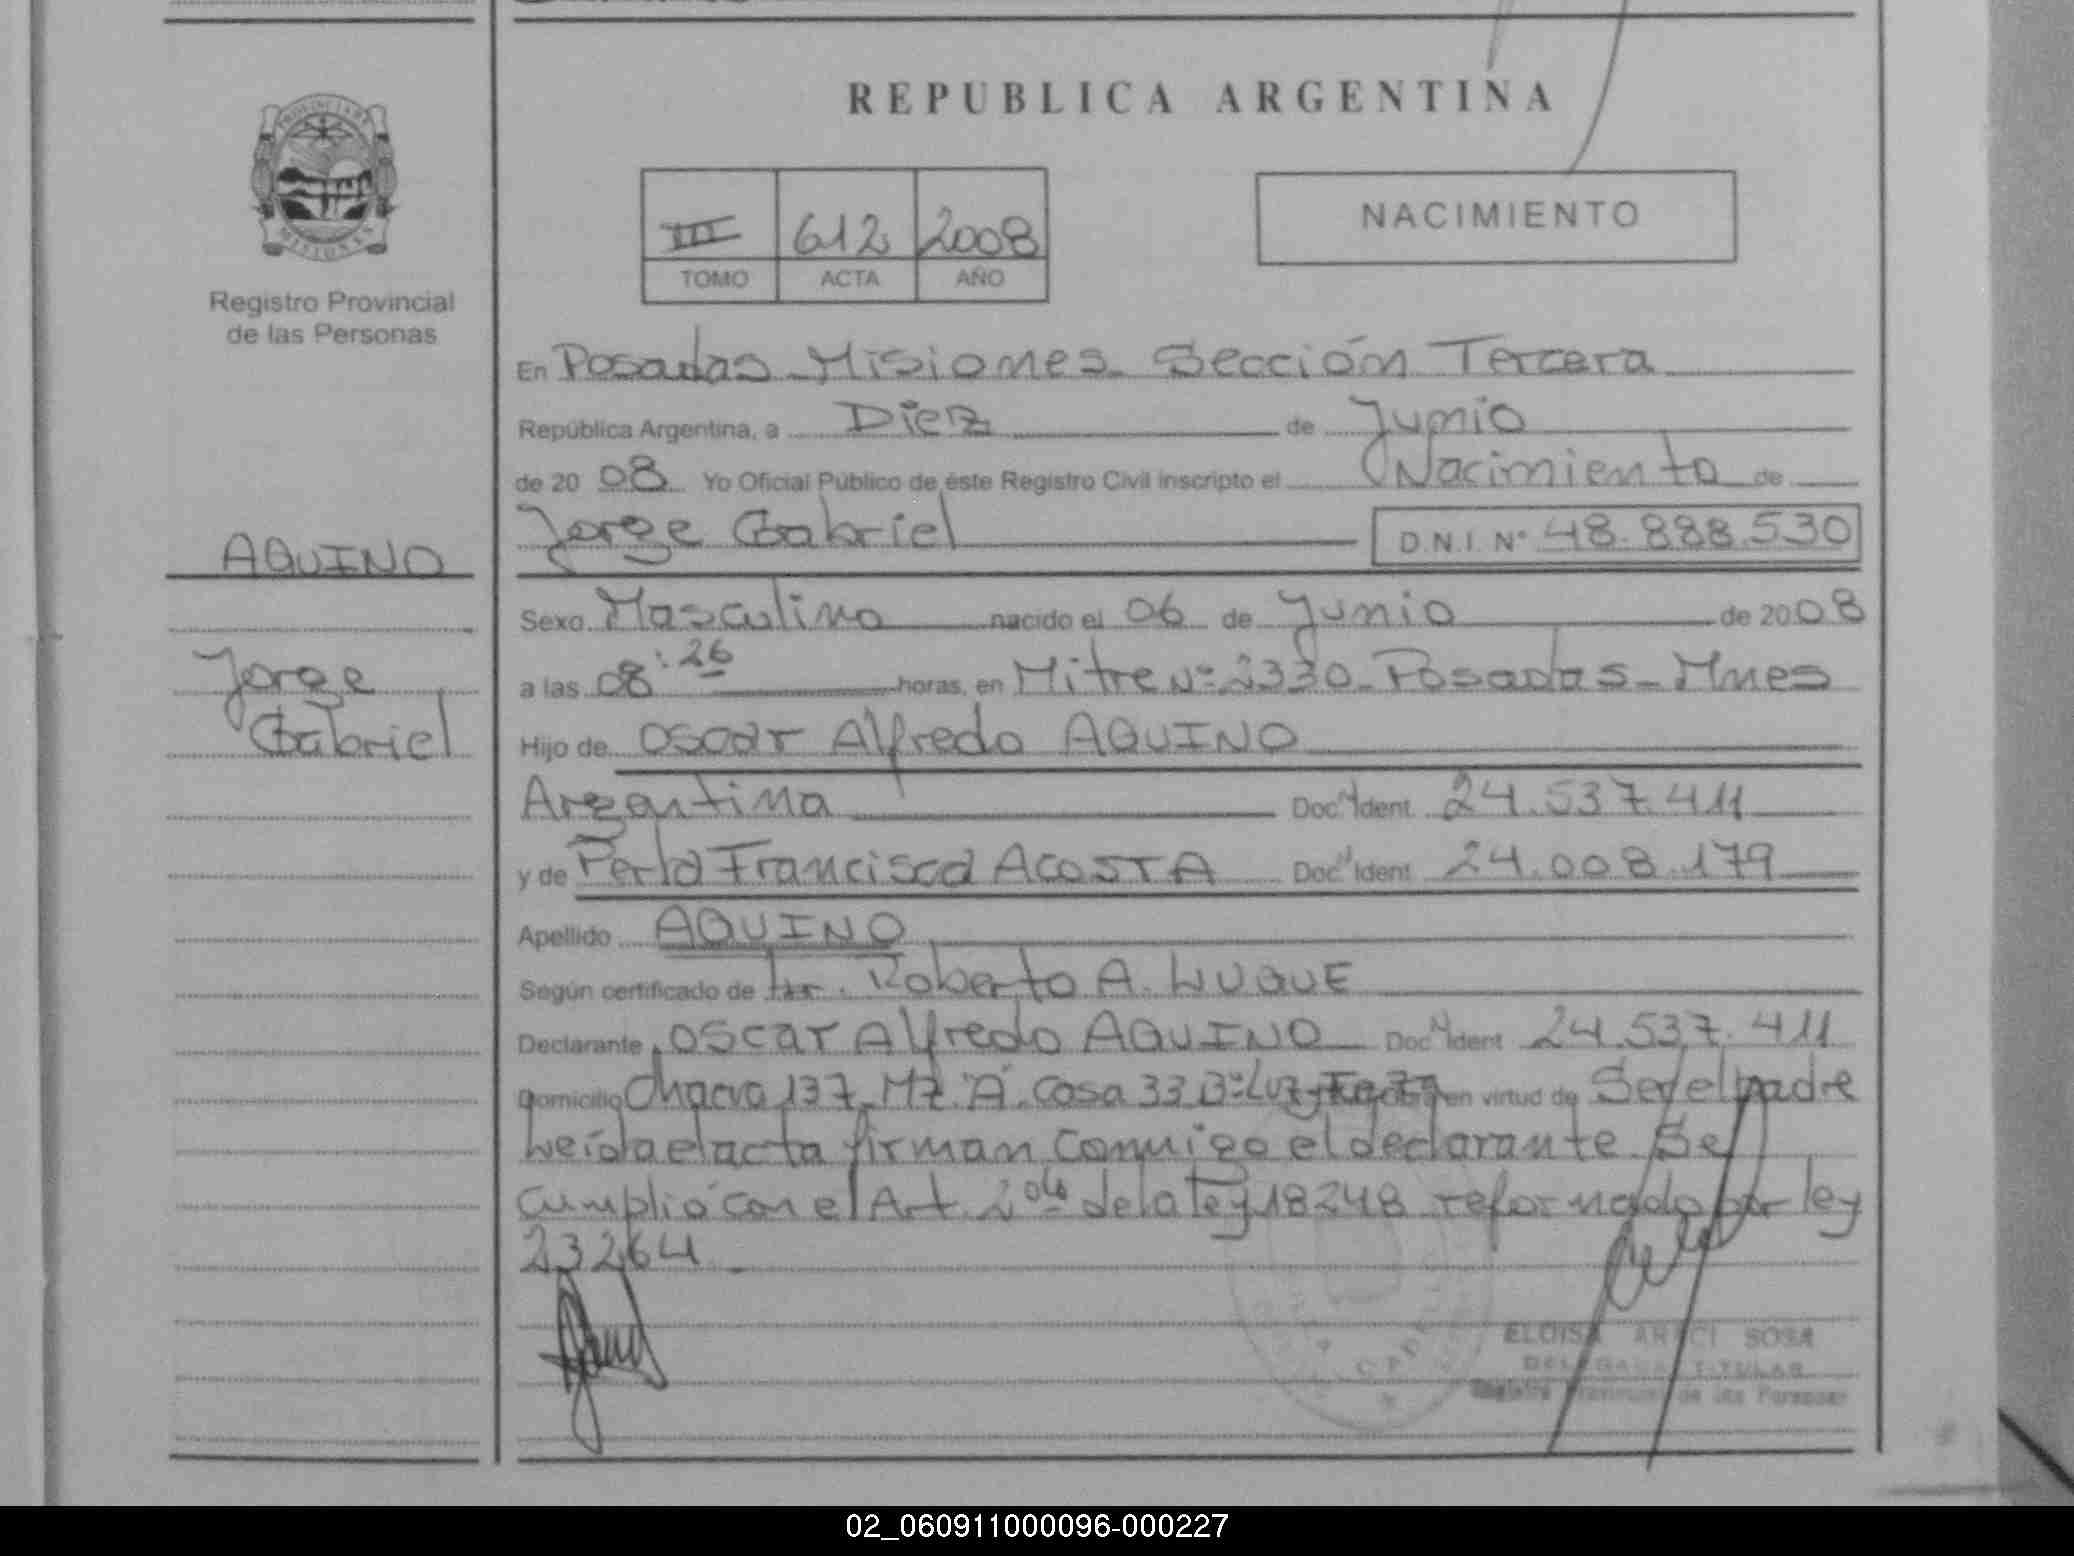 PROVINCIA DE
MISIONES
Registro Provincial
de las Personas
AQUINO
Jorge
Gabriel
REPUBLICA ARGENTINA
III 612 2008
TOMO ACTA AÑO
NACIMIENTO
En Posadas Misiones Sección Tercera
República Argentina, a Diez de Junio
de 2008 Yo Oficial Público de éste Registro Civil inscripto el Nacimiento de
Jorge Gabriel D.N.I. N° 48.888.530
Sexo Masculino nacido el 06 de Junio de 2008
a las 08:26 horas, en Mitre N° 2330 - Posadas - Mnes
Hijo de Oscar Alfredo AQUINO
Argentina Doc. Ident. 24.537.411
y de Perla Francisca ACOSTA Doc. Ident. 24.008.179
Apellido AQUINO
Según certificado de Roberto A. LUQUE
Declarante OSCAR Alfredo AQUINO Doc. Ident. 24.537.411
Domicilio Chacra 137 Mz "A" Casa 33 B° en virtud de Ser el padre
Leída el acta firman conmigo el declarante. Se
cumplió con el Art. 2do de la ley 18248 reformado por ley
23264
ELOISA ARECI SOSA
DELEGADA TITULAR
Registro Provincial de las Personas
02_060911000096-000227